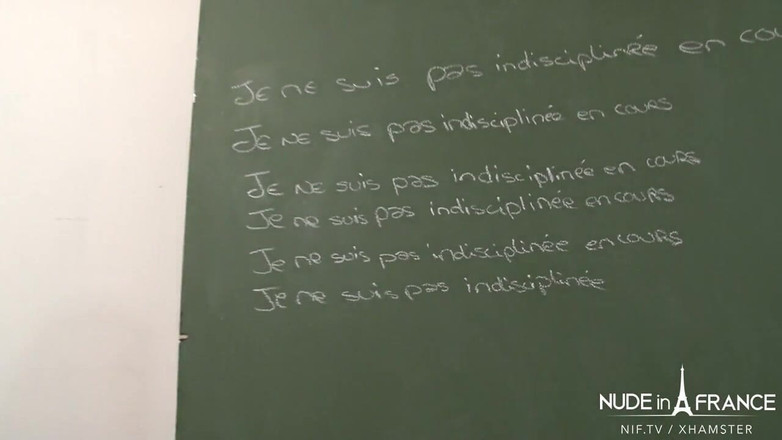 Je ne suis pas indisciplinée en cou
Je ne suis pas indisciplinée en cours
Je ne suis pas indisciplinée en cours
Je ne suis pas indisciplinée en cours
Je ne suis pas indisciplinée en cours
Je ne suis pas indisciplinée
NUDE in FRANCE
NIF.TV / XHAMSTER